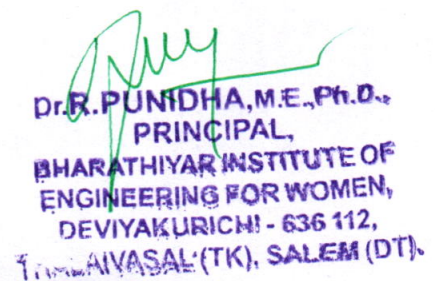 Dr.R.PUNIDHA,M.E.,Ph.D.,
PRINCIPAL,
BHARATHIYAR INSTITUTE OF
ENGINEERING FOR WOMEN,
DEVIYAKURICHI - 636 112,
(TK), SALEM (DT).